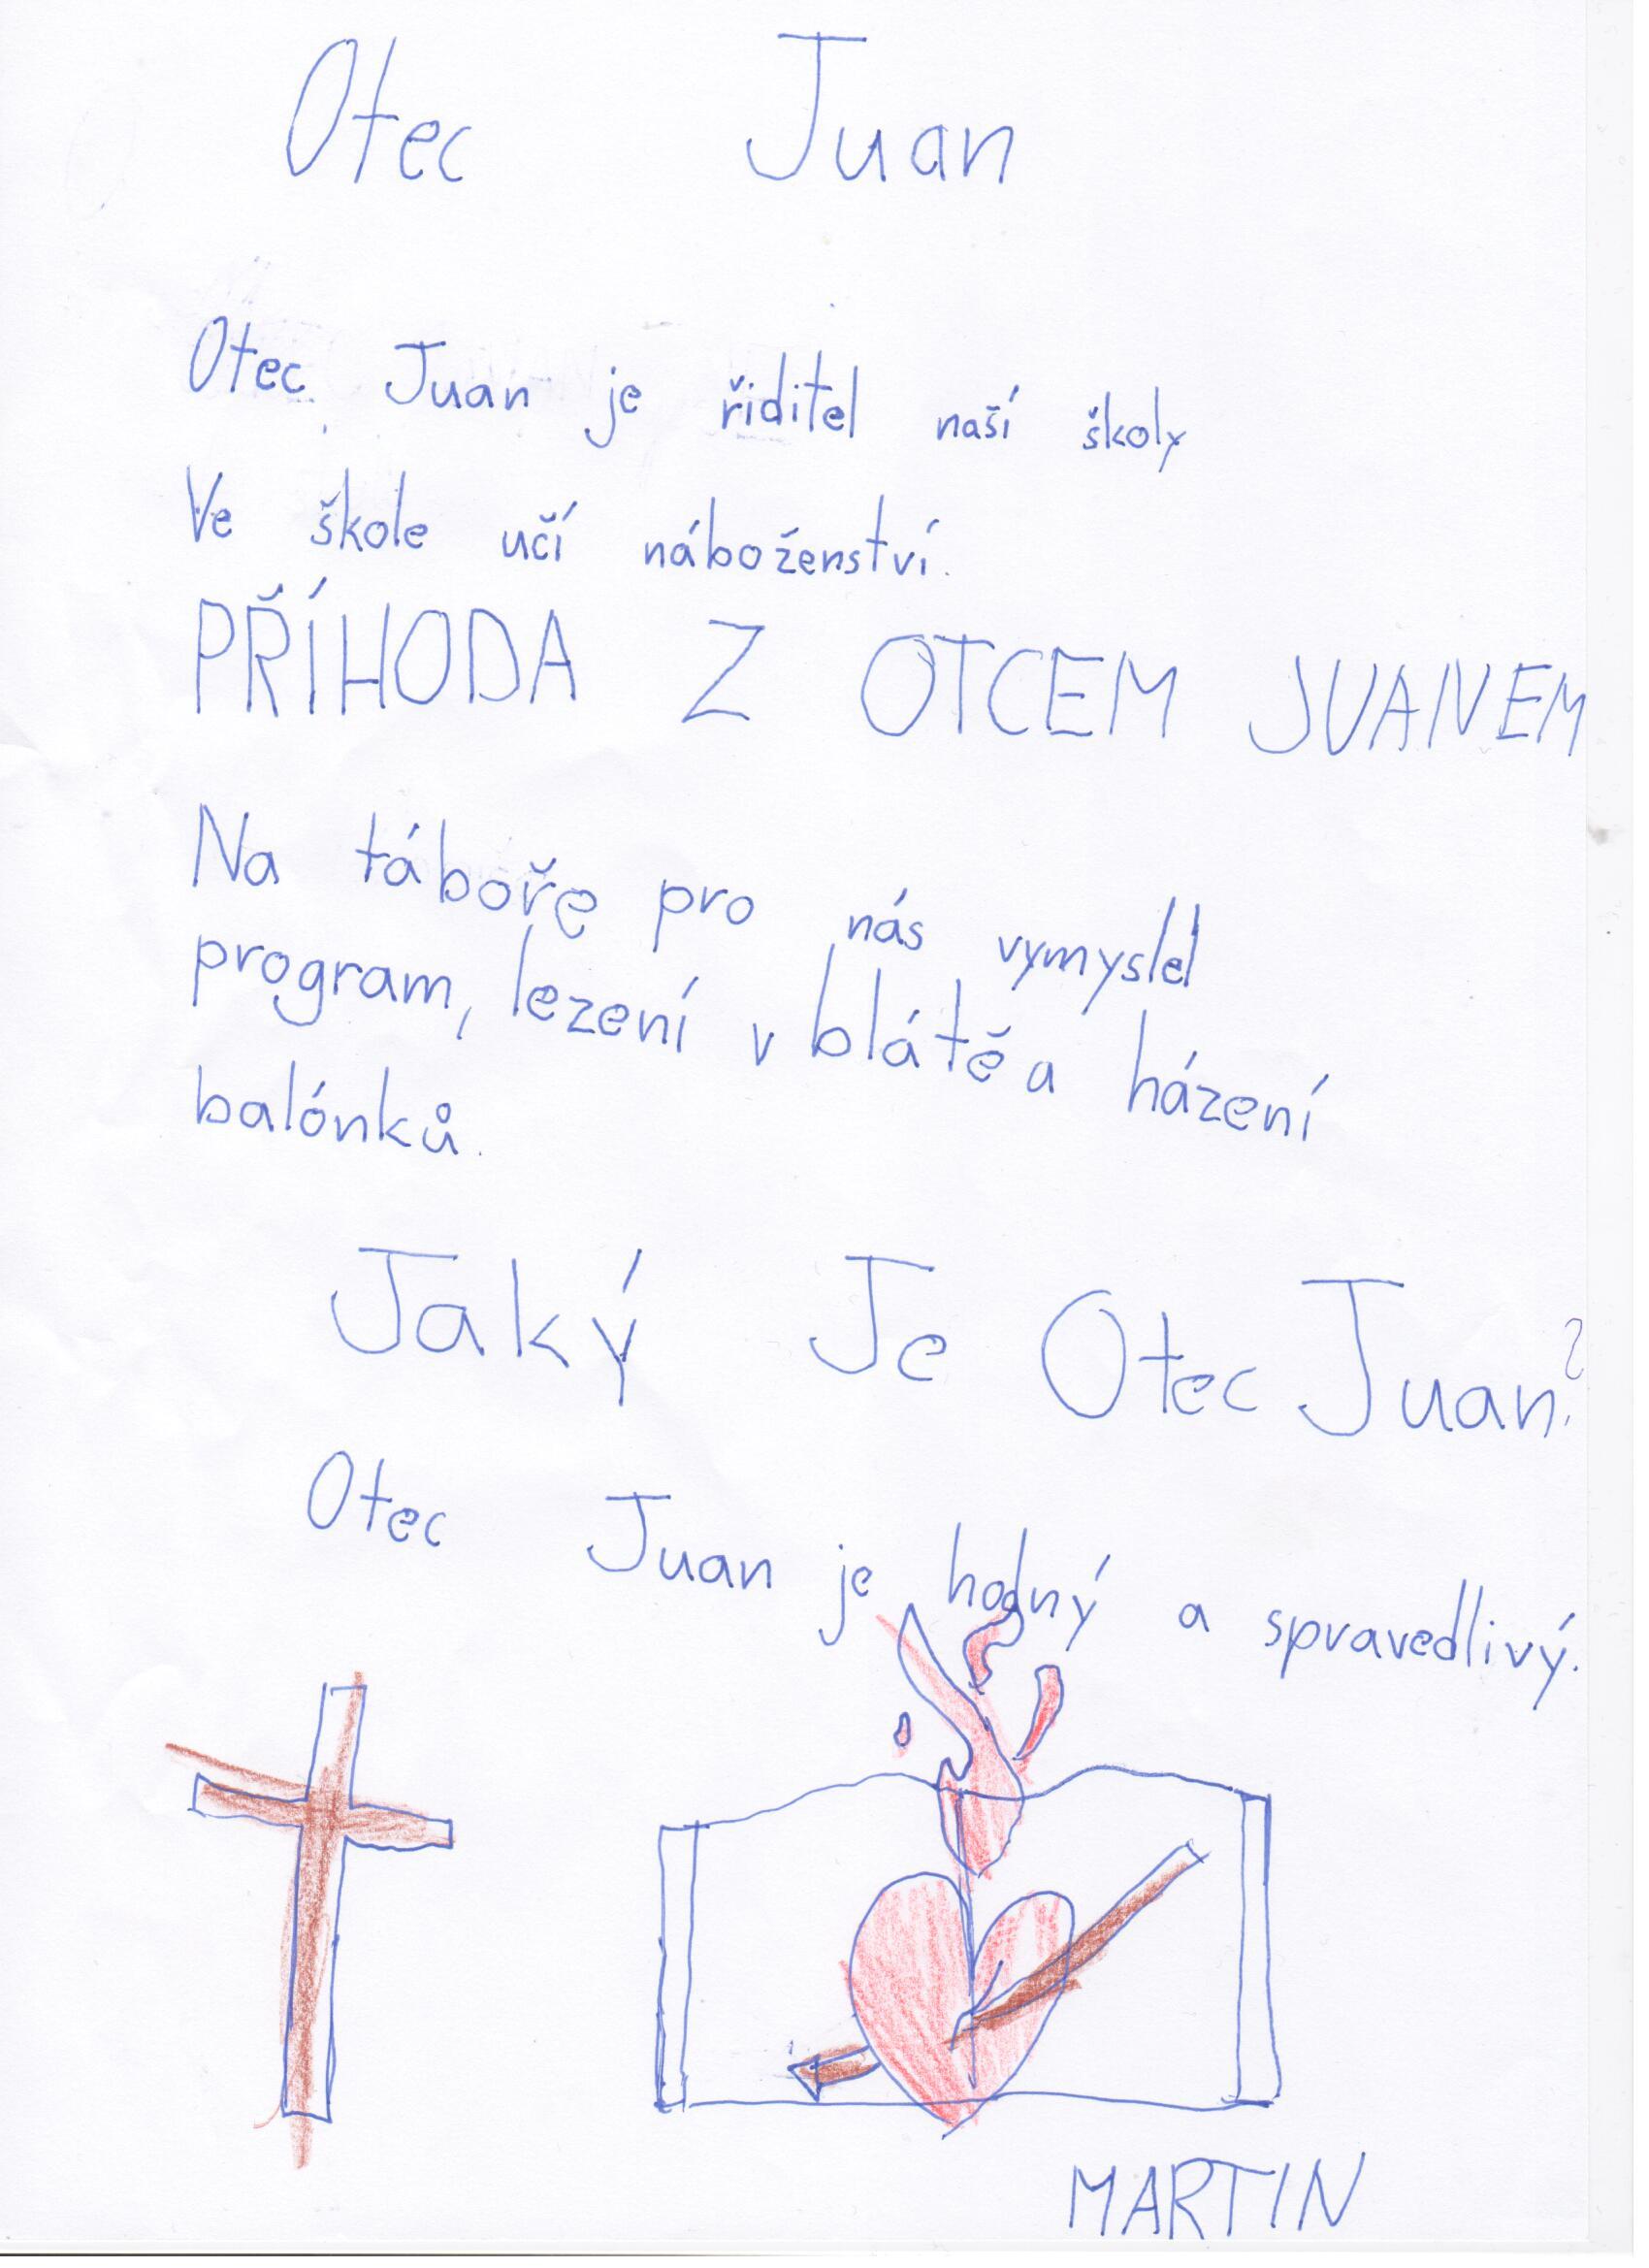 Otec Juan
Otec Juan je řiditel naší školy
Ve škole učí náboženství.
PŘÍHODA Z OTCEM JUANEM
Na táboře pro nás vymyslel
program, lezení v blátě a házení
balónků.
Jaký Je Otec Juan?
Otec Juan je hodný a spravedlivý.
MARTIN